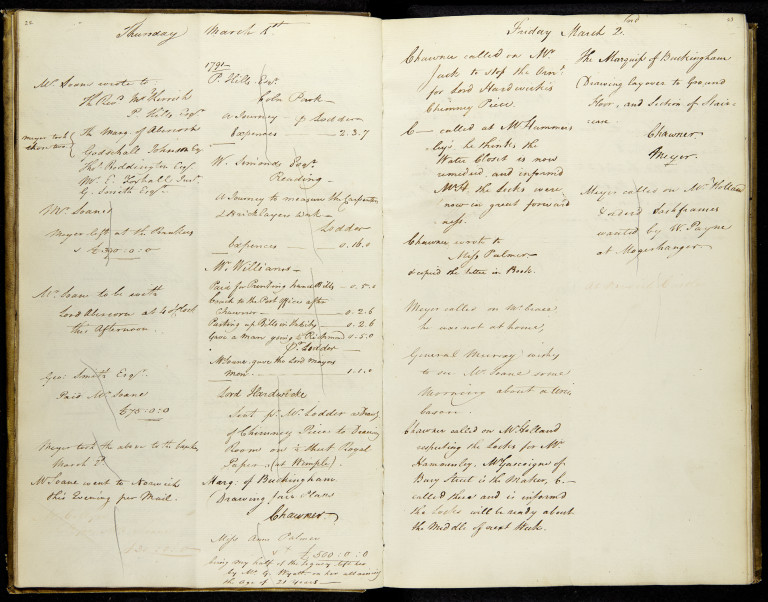 22
Thursday March 1st
Mr. Soane wrote to
The Revd. Mr. Herrick
P. Hills Esqr.
Meyer took these two
The Marq. of Abercorn
Godschall Johnson Esq
Thos. Reddington Esqr.
Mr. E. Foxhall Junr.
G. Smith Esqr.
Mr. Soane
Meyer left at the Bankers
0 : 0
Mr. Soane to be with
Lord Abercorn at 4 o'Clock
this Afternoon
Geo: Smith Esqr.
Paid Mr. Soane
£75 : 0 : 0
Meyer took the above to the bankers
March 2d.
Mr. Soane went to Norwich
this Evening per Mail.
1791
P. Hills Esqr.
Coln Park
A Journey p Lodder
Expences 2.3.7
W. Simonds Esqr.
Reading
A Journey to measure the Carpenters
& Bricklayers work
Lodder
Expences 0.16.0
Mr. Williams
Paid for Printing hand Bills 0.5.0
Coach to the Post Office after
Chawner 0.2.6
Posting up Bills in the City 0.2.6
Gave a man going to Richmd 0.5.0
Pr. Lodder
Mr Soane gave the Lord Mayors
men 1.1.0
Lord Hardwicke
Sent pr. Mr. Lodder a Drawg
of Chimney Piece to Drawing
Room on ½ sheet Royal
Paper (at Wimple).
Marq. of Buckingham
Drawing fair Plans
Chawner
Miss Ann Palmer
£500 : 0 : 0
being my half of the legacy left her
by Mr. G. Wyatt on her attaining
the age of 21 years
23
Friday March 2nd
Chawner called on Mr.
Jack to stop the Ornts.
for Lord Hardwick's
Chimney Piece.
C— called at Mr Hammers
ley's he thinks the
Water Closet is now
remedied, and informd
Mr H. the locks were
now in great forward
ness.
Chawner wrote to
Miss Palmer
& copied the letter in Book.
Meyer called on Mr.
he was not at home,
General Murray wishes
to see Mr. Soane some
Morning about
Chawner called on Mr. Holland
respecting the Locks for Mr.
Hammersley. Mr Gascoigne of
Bury Street is the Maker, C—
called there and is informd
the locks will be ready about
the Middle of next Week.
The Marquiss of Buckingham
Drawing lay over to Ground
Floor, and Section of Stair=
case
Chawner
Meyer.
Meyer called on Mr. Holland
& orderd Sashframes
wanted by W. Payne
at Mogerhanger